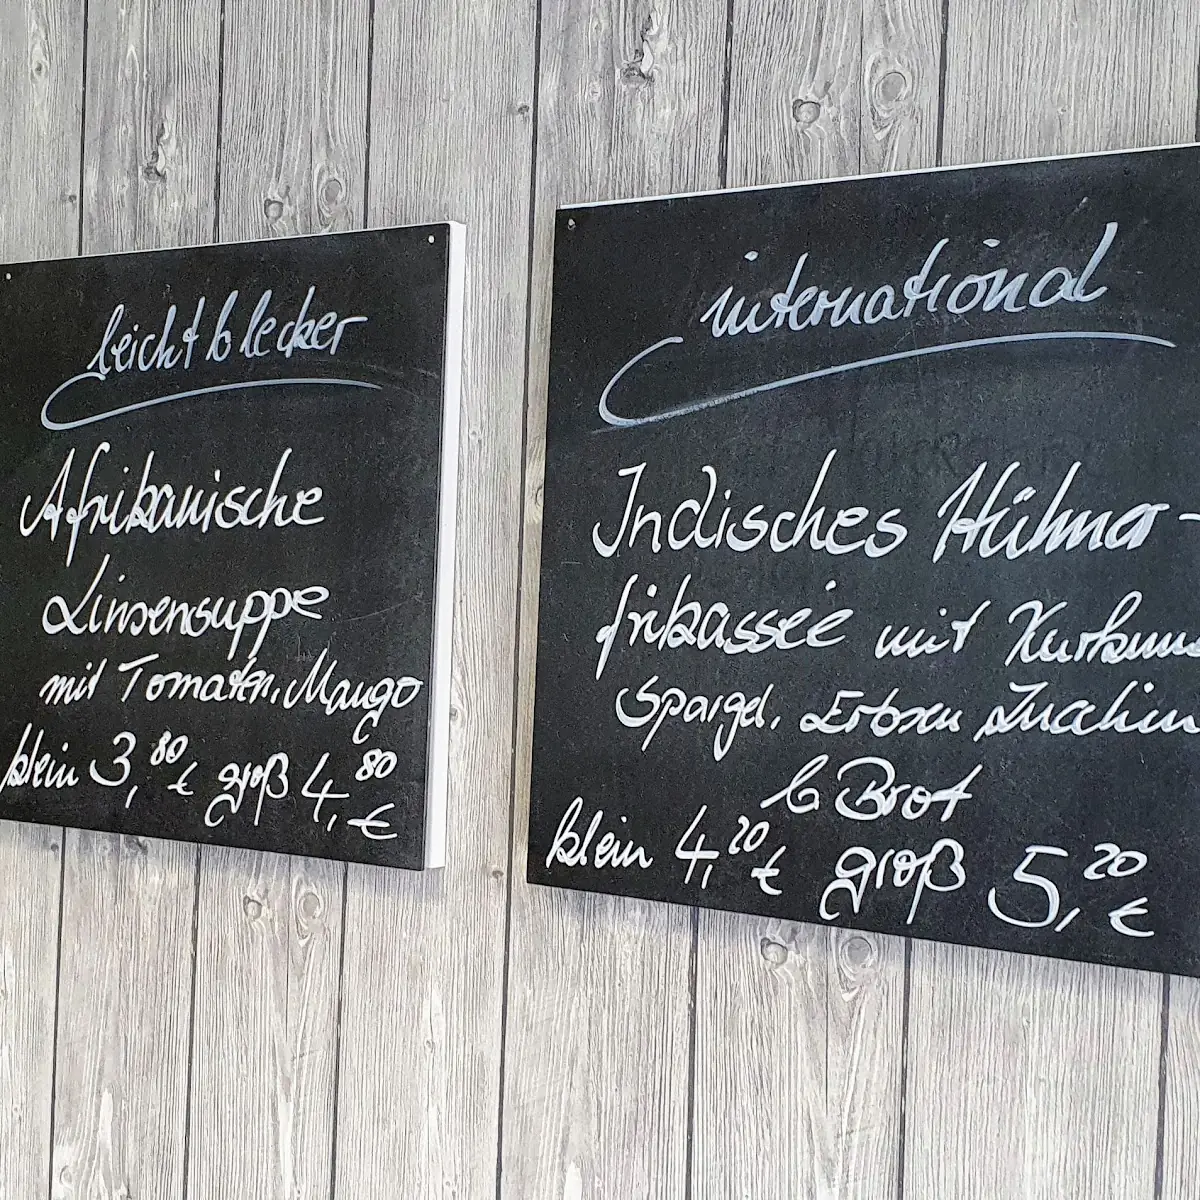 leicht & lecker
Afrikanische
Linsensuppe
mit Tomaten, Mango
klein 3,80 € groß 4,80 €
international
Indisches Hühner-
frikassee mit Kurkum
Spargel, Erbsen Zucchin
& Brot
klein 4,20 € groß 5,20 €